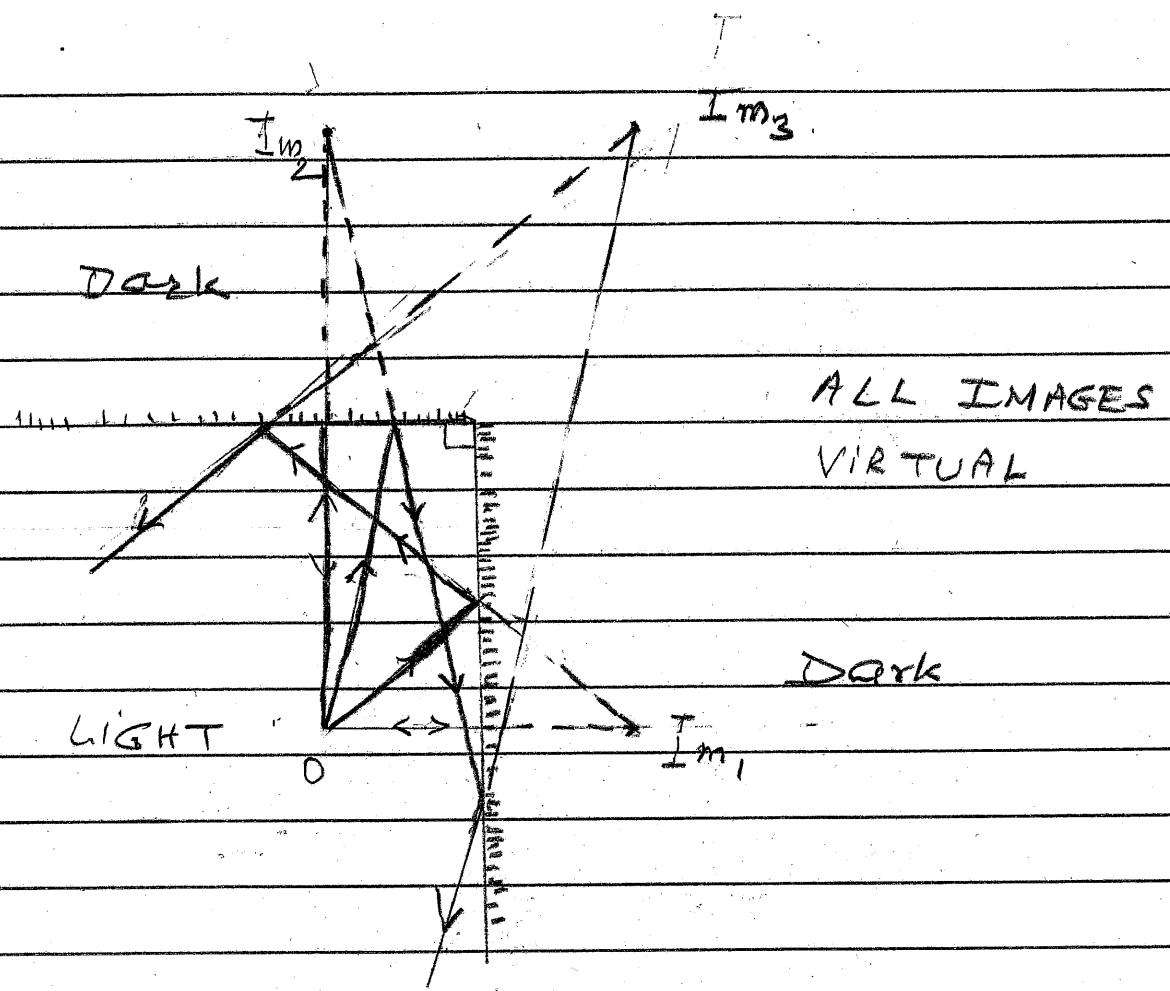 Im₃
Im₂
Dark
ALL IMAGES
VIRTUAL
Dark
LIGHT
Im₁
O